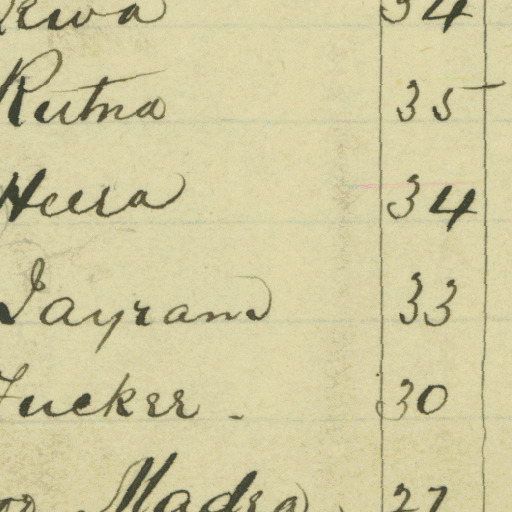 Rewa 34
Rutna 35
Heera 34
Jayram 33
Fucker - 30
Madra 27